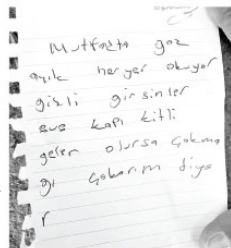 Mutfakta gaz
açık her yer okuyor
gizli girsinler
eve kapı kitli
gelen olursa çakma
gı çakarım diye
r